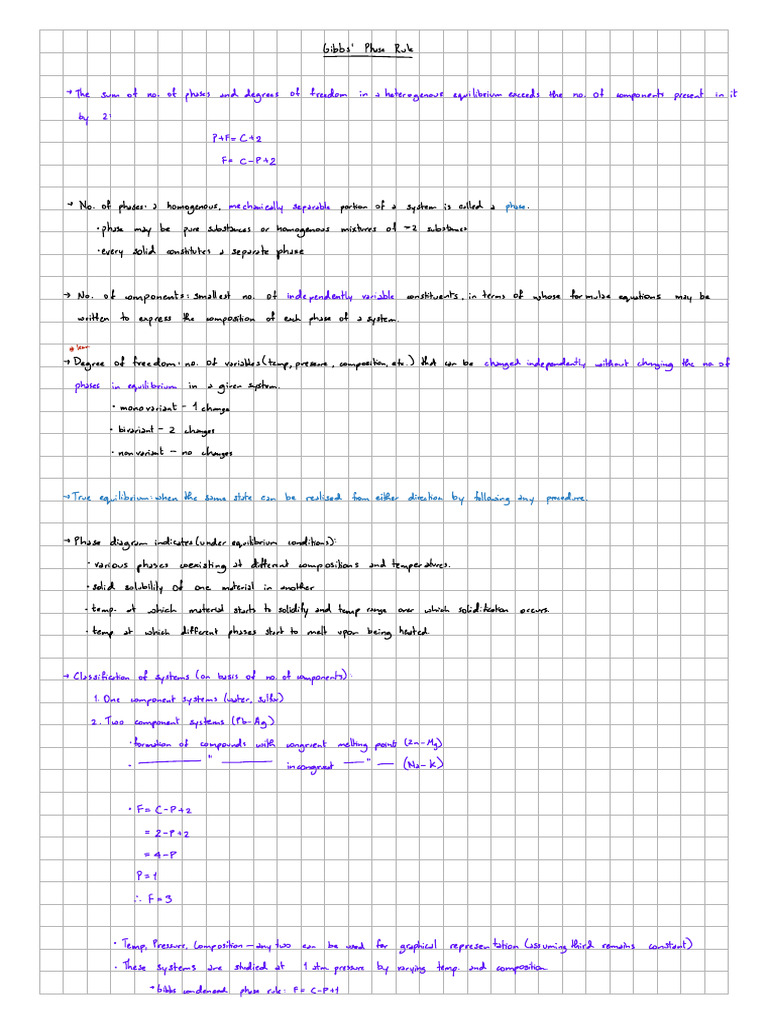 Gibbs' Phase Rule
→ The sum of no. of phases and degrees of freedom in a heterogenous equilibrium exceeds the no. of components present in it
by 2:
P+F= C+2
F= C-P+2
→ No. of phases: a homogenous, mechanically separable portion of a system is called a phase.
• phase may be pure substances or homogenous mixtures of 2 substances
• every solid constitutes a separate phase
→ No. of components: smallest no. of independently variable constituents, in terms of whose formulae equations may be
written to express the composition of each phase of a system.
→ Degree of freedom: no. of variables (temp, pressure, composition, etc.) that can be changed independently without changing the no. of
phases in equilibrium in a given system.
• monovariant - 1 change
• bivariant - 2 changes
• nonvariant - no changes
→ True equilibrium: when the same state can be realised from either direction by following any procedure.
→ Phase diagram indicates (under equilibrium conditions):
• various phases coexisting at different compositions and temperatures.
• solid solubility of one material in another
• temp. at which material starts to solidify and temp range over which solidification occurs.
• temp at which different phases start to melt upon being heated.
→ Classification of systems (on basis of no. of components):
1. One component systems (water, sulfur)
2. Two component systems (Pb-Ag)
• formation of compounds with congruent melting point (Zn-Mg)
• —— " —— incongruent — " — (Na-K)
• F= C-P+2
= 2-P+2
= 4-P
P=1
∴ F=3
• Temp, Pressure, Composition - any two can be used for graphical representation (assuming third remains constant)
• These systems are studied at 1 atm pressure by varying temp. and composition
→ Gibbs condensed phase rule: F= C-P+1